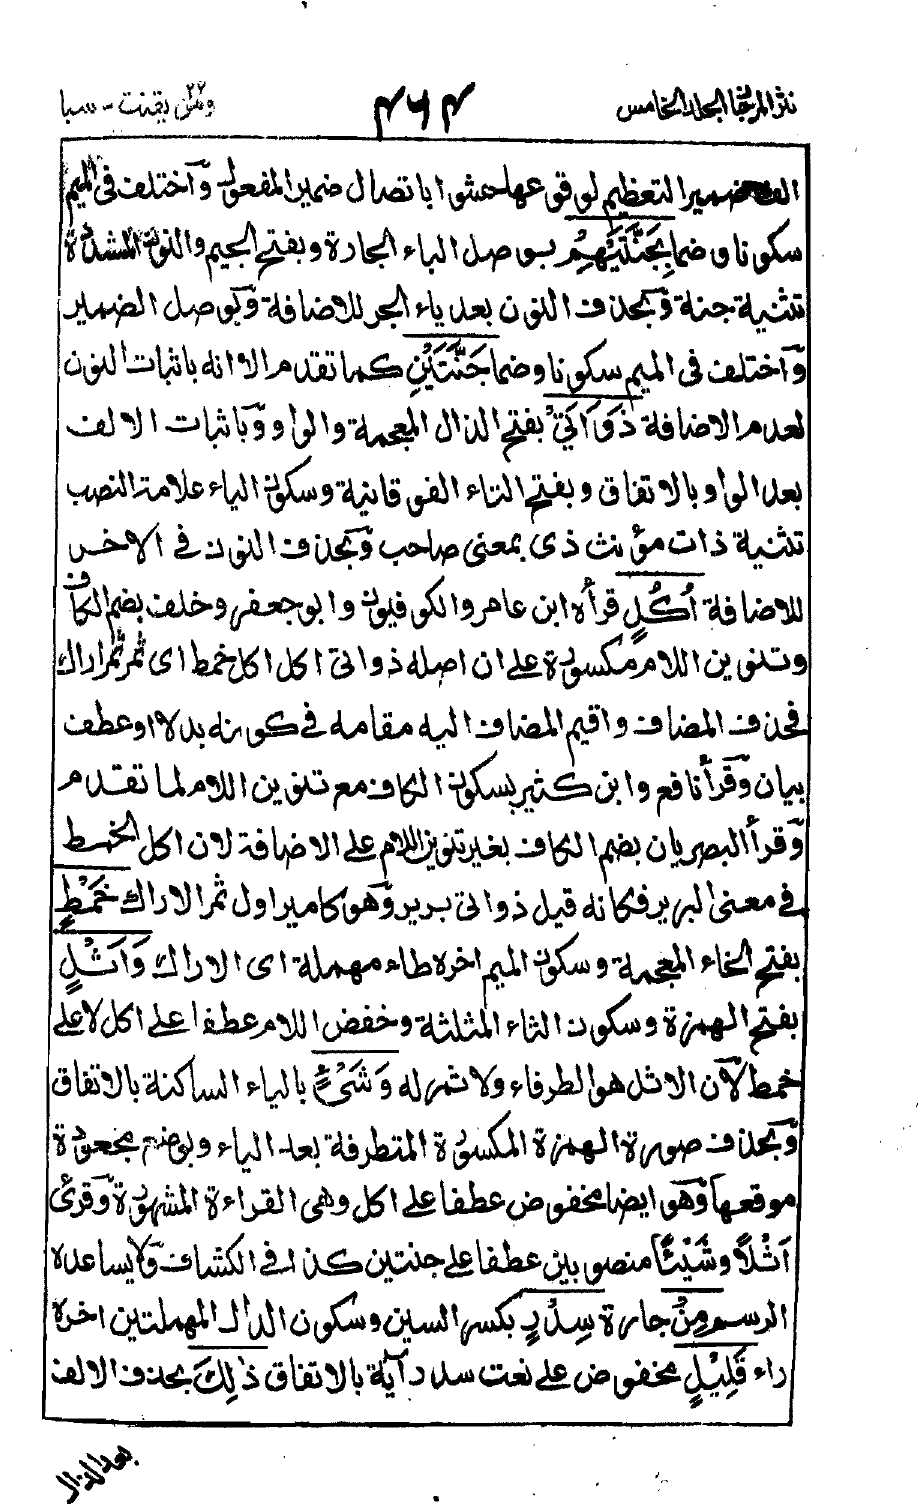 نثر المرجان المجلد الخامس
٤٦٤
ومن يقنت ٢٢ - سبا
الف ضمير التعظيم لوقوعها حشوا باتصال ضمير المفعول وٓاختلف فى الميم
سكونا وضما بِجَنَّتَيْهِمْ بوصل الباء الجارة وبفتح الجيم والنون المشددة
تثنية جنة وٓبحذف النون بعد ياء الجر للاضافة وٓبوصل الضمير
وٓاختلف فى الميم سكونا وضما جَنَّتَيْنِ كما تقدم الا انه باثبات النون
لعدم الاضافة ذَوَاتَيْ بفتح الذال المعجمة والواو وٓباثبات الالف
بعد الواو بالاتفاق وبفتح التاء الفوقانية وسكون الياء علامة النصب
تثنية ذات مؤنث ذى بمعنى صاحب وٓبحذف النون فى الاخر
للاضافة اُكُلٍ قرأه ابن عامر والكوفيون وابوجعفر وخلف بضم الكاف
وتنوين اللام مكسورة على ان اصله ذواتى اكل اكل خمط اى ثمر ثمر اراك
فحذف المضاف واقيم المضاف اليه مقامه فى كونه بدلا او عطف
بيان وٓقرأ نافع وابن كثير بسكون الكاف مع تنوين اللام لما تقدم
وٓقرأ البصريان بضم الكاف بغير تنوين اللام على الاضافة لان اكل الخمط
فى معنى البرير فكانه قيل ذواتى برير وٓهو كامير اول ثمر الاراك خَمْطٍ
بفتح الخاء المعجمة وسكون الميم اخره طاء مهملة اى الاراك وَاَثْلٍ
بفتح الهمزة وسكون الثاء المثلثة وخفض اللام عطفا على اكل لا على
خمط لآن الاثل هو الطرفاء ولا ثمر له وَشَىْءٍ بالياء الساكنة بالاتفاق
وٓبحذف صورة الهمزة المكسورة المتطرفة بعد الياء وبوضع مجعودة
موقعها وٓهو ايضا مخفوض عطفا على اكل وهى القراءة المشهورة وٓقرئ
اَثْلًا وشَيْئًا منصوبين عطفا على جنتين كذا فى الكشاف وٓلا يساعده
الرسم مِنْ جارة سِدْرٍ بكسر السين وسكون الدال المهملتين اخره
راء قَلِيْلٍ مخفوض على نعت سدر آية بالاتفاق ذٰلِكَ بحذف الالف
بعد الذال